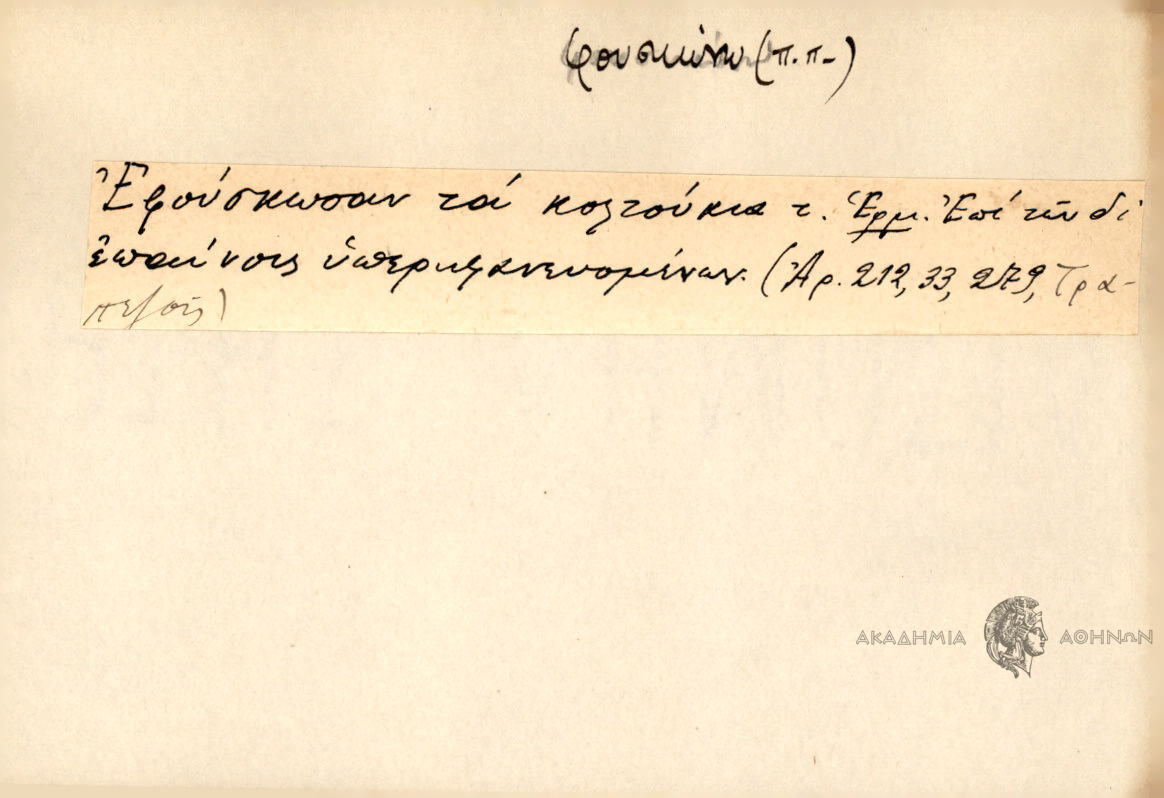 φουσκώνω (π.π-)
Ἐφούσκωσαν τά κολτούκια τ. Ἑρμ. Ἐπί τῶν δι'
ἐπαίνοις ὑπερηφανευομένων. (Ἀρ. 212, 33, 279, Τρα-
πεζοῦς)
ΑΚΑΔΗΜΙΑ ΑΘΗΝΩΝ